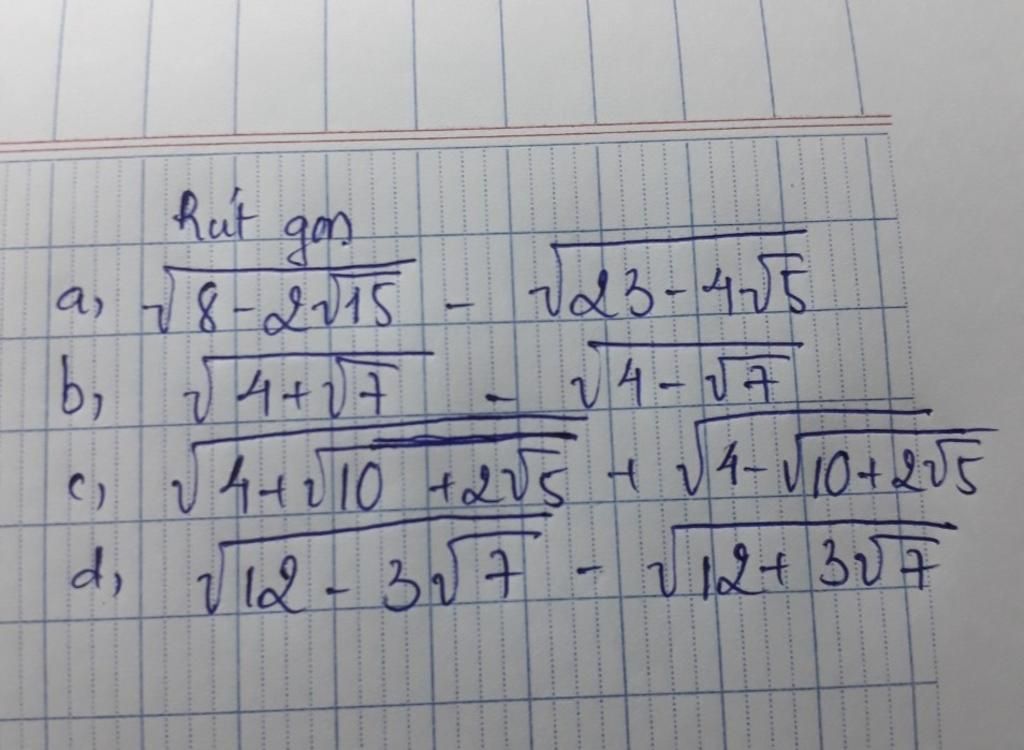 Rút gọn
a, √(8 - 2√15) - √(23 - 4√5)
b, √(4 + √7) - √(4 - √7)
c, √(4 + √(10 + 2√5)) + √(4 - √(10 + 2√5))
d, √(12 - 3√7) - √(12 + 3√7)